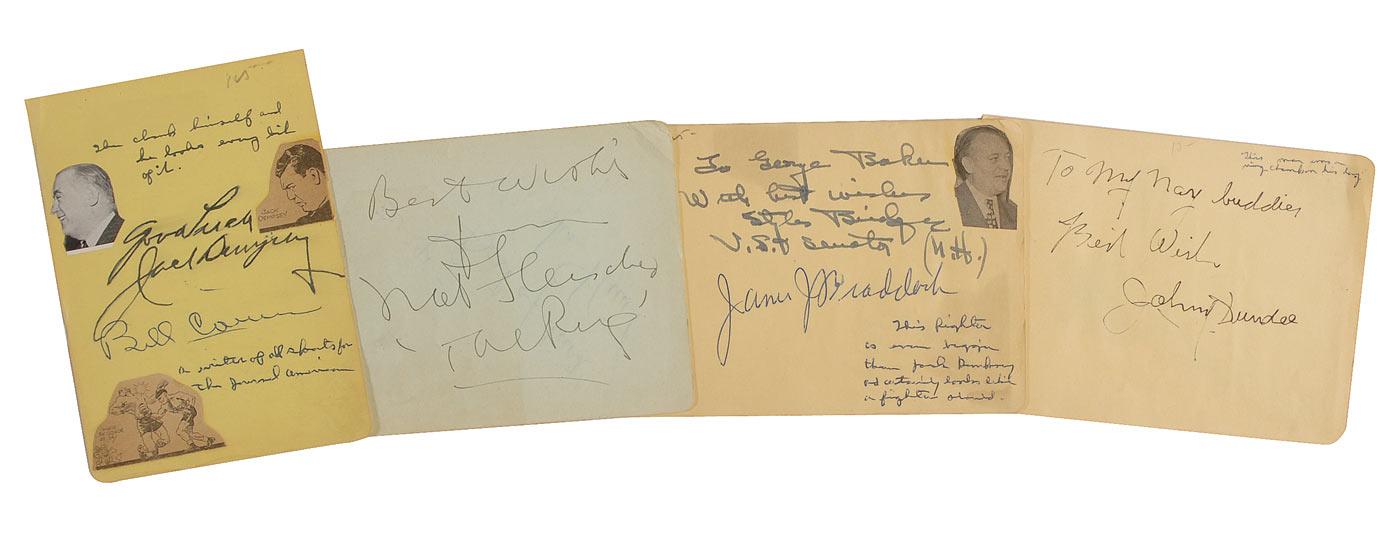 The champ himself and
he looks every bit
of it.
JACK
DEMPSEY
Good Luck
Jack Dempsey
Bill Corum
a writer of all sports for
the Journal American
Best Wishes
from
Nat Fleischer
"The Ring"
To George Baker
With best wishes
Styles Bridges
U.S. Senator (N.H.)
James J Braddock
This fighter
is even bigger
than Jack Dempsey
and certainly looks like
a fighter should.
15-
This man was a
ring champion his day
To My Nav buddies
Best Wish
Johnny Dundee